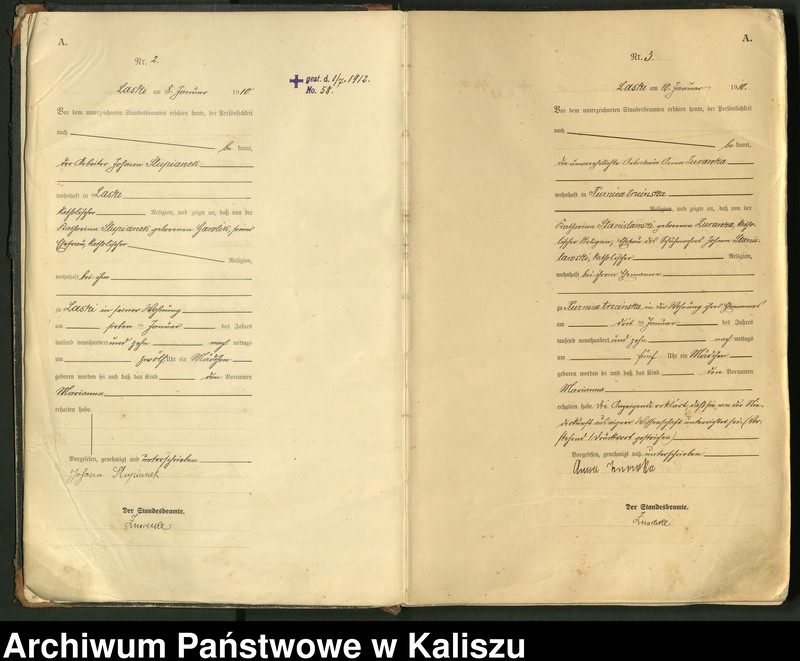 A.
Nr. 2.
Laski am 8. Januar 1910
Vor dem unterzeichneten Standesbeamten erschien heute, der Persönlichkeit
nach
be kannt,
der Arbeiter Johann Slupianek
wohnhaft in Laski
katholischer Religion, und zeigte an, daß von der
Katharina Slupianek geborenen Gawlek, seiner
Ehefrau, katholischer
Religion,
wohnhaft bei ihm
zu Laski in seiner Wohnung
am sieben ten Januar des Jahres
tausend neunhundert und zehn nach mittags
um zwölf Uhr ein Mädchen
geboren worden sei und daß das Kind den Vornamen
Marianna
erhalten habe.
Vorgelesen, genehmigt und unterschrieben
Johann Slupianek
Der Standesbeamte.
gest. d. 1/7. 1912.
No. 58.
A.
Nr. 3.
Laski am 10. Januar 1910.
Vor dem unterzeichneten Standesbeamten erschien heute, der Persönlichkeit
nach
be kannt,
die unverehelichte Arbeiterin Anna Zurawka
wohnhaft in Kuznica trzcinska
Religion, und zeigte an, daß von der
Katharina Stanislawski, geborenen Zurawka, katho-
lischer Religion, Ehefrau des Schuhmachers Johann Stanis-
lawski, katholischer Religion,
wohnhaft bei ihrem Ehemanne
zu Kuznica trzcinska in der Wohnung ihres Ehemannes
am drit ten Januar des Jahres
tausend neunhundert und zehn nach mittags
um fünf Uhr ein Mädchen
geboren worden sei und daß das Kind den Vornamen
Marianna
erhalten habe. Die Anzeigende erklärt, daß sie von der Nie-
derkunft aus eigener Wissenschaft unterrichtet sei. (Vor-
stehend 1 Druckwort gestrichen)
Vorgelesen, genehmigt und unterschrieben
Anna Zurawka
Der Standesbeamte.
Archiwum Państwowe w Kaliszu